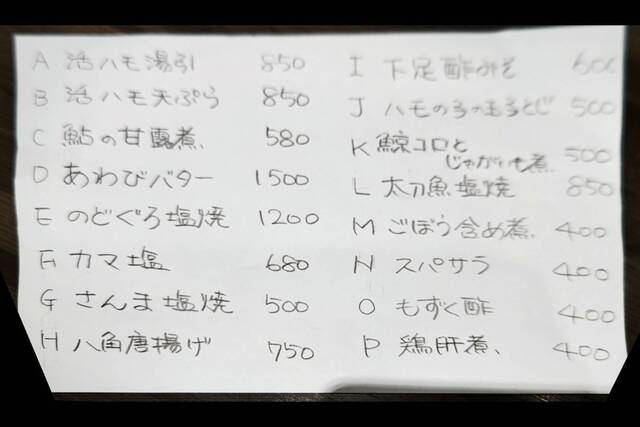 A 活ハモ湯引 850
B 活ハモ天ぷら 850
C 鮎の甘露煮 580
D あわびバター 1500
E のどぐろ塩焼 1200
F カマ塩 680
G さんま塩焼 500
H 八角唐揚げ 750
I 下足酢みそ 600
J ハモの子の玉子とじ 500
K 鯨コロと
じゃがいも煮 500
L 太刀魚塩焼 850
M ごぼう含め煮 400
N スパサラ 400
O もずく酢 400
P 鶏肝煮 400